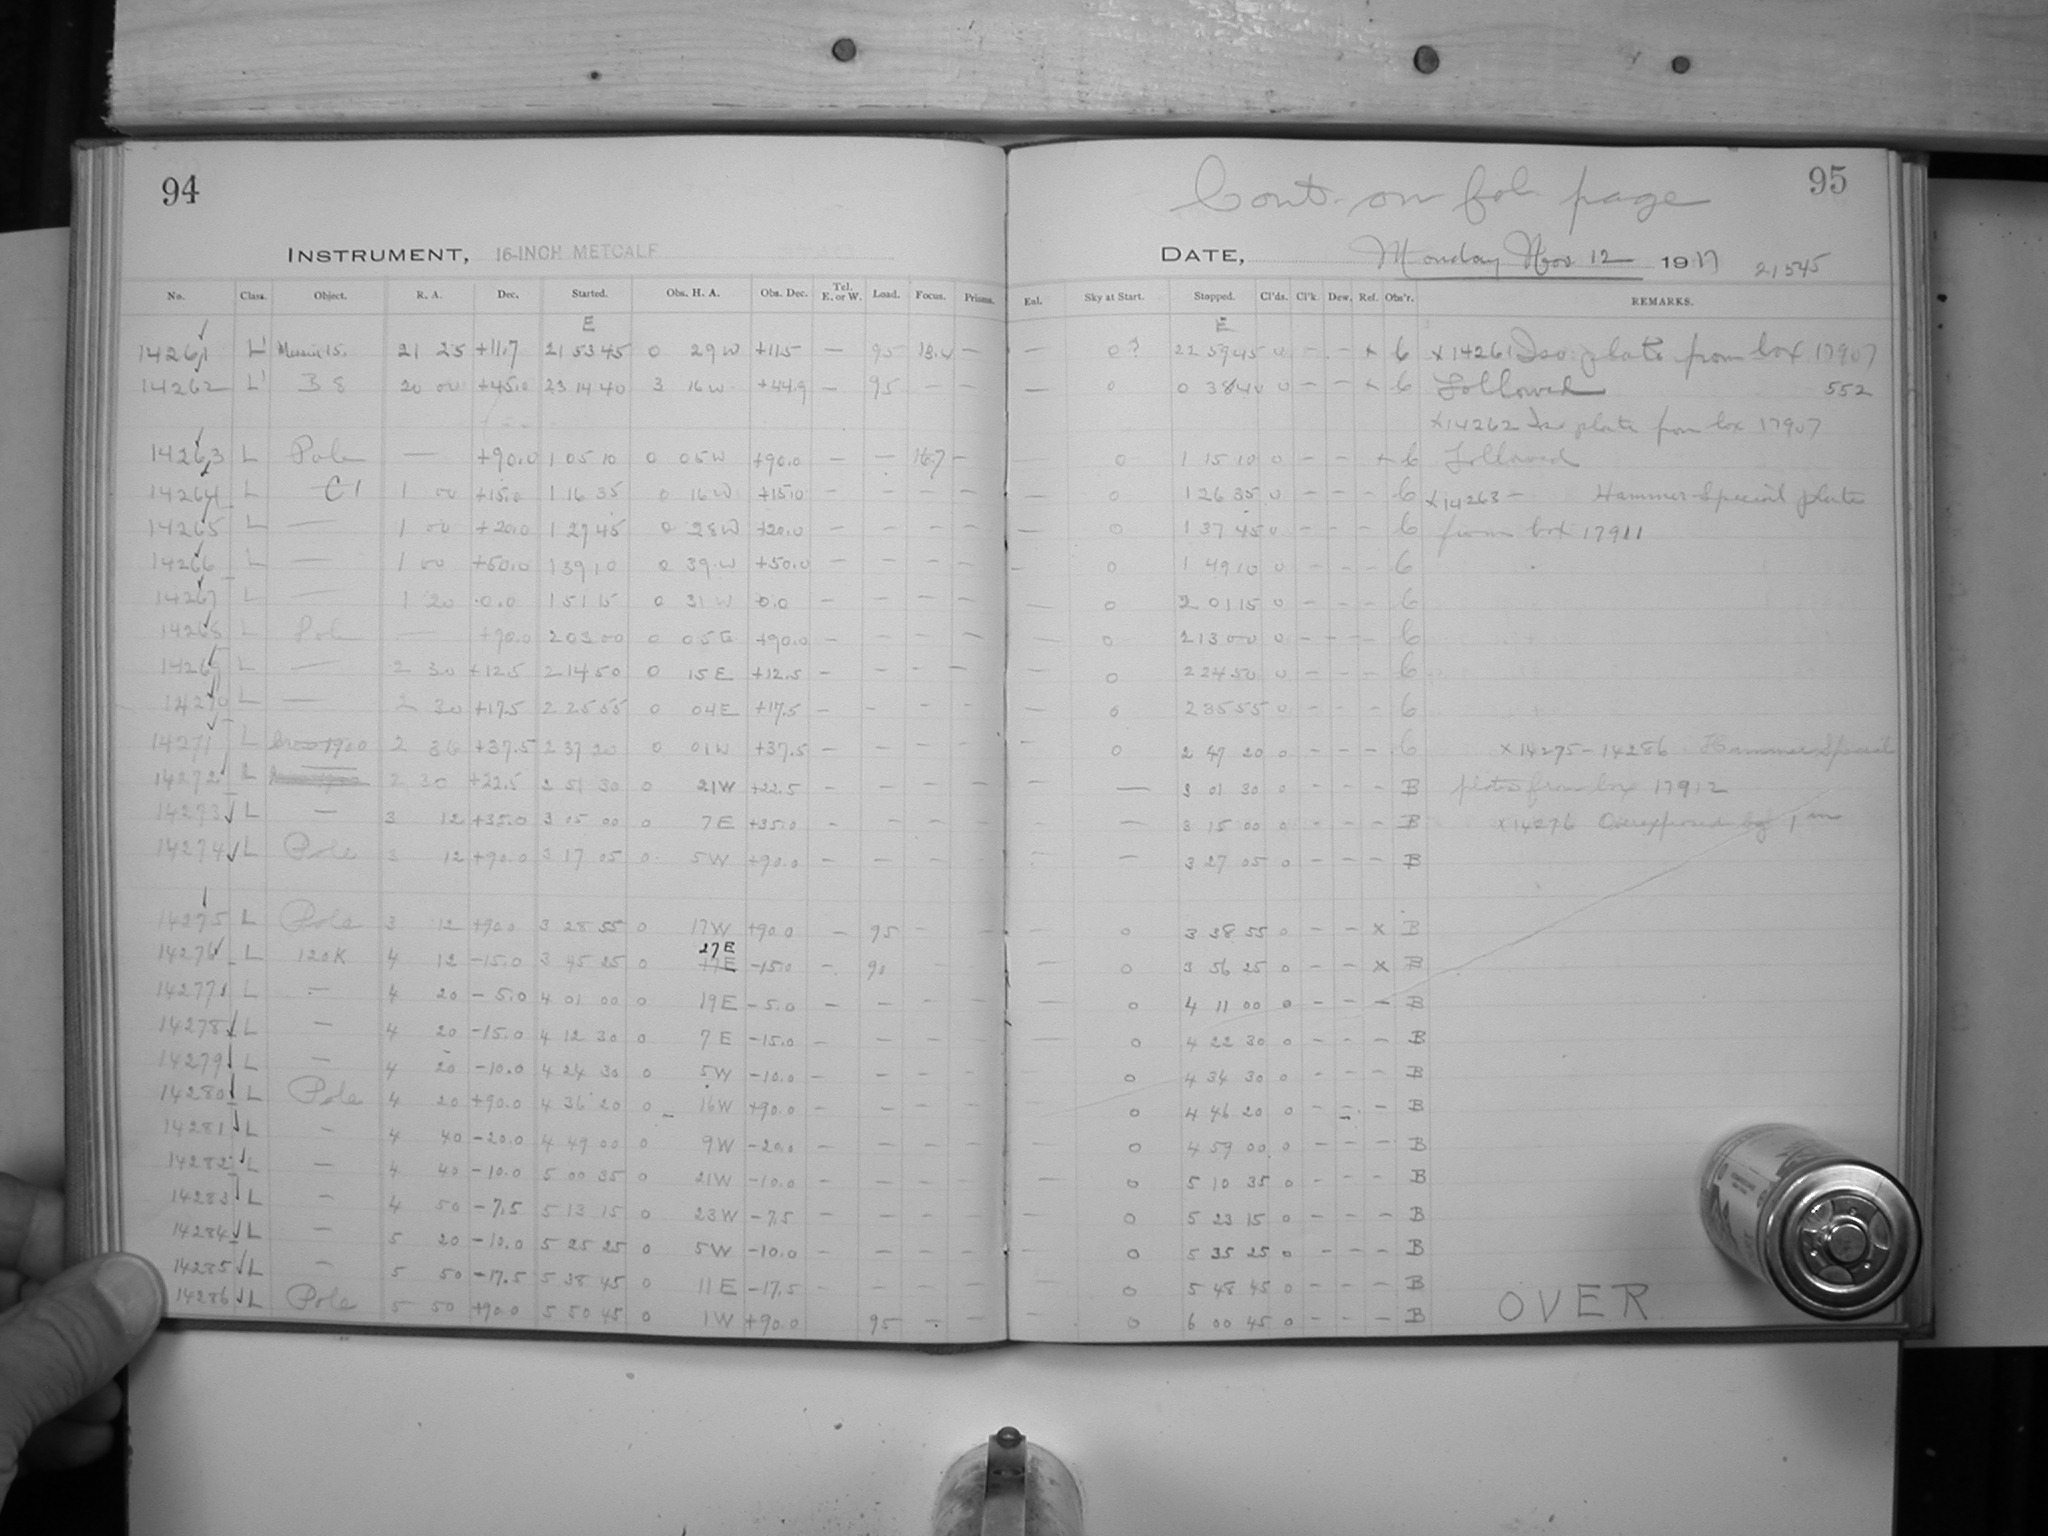 94
INSTRUMENT, 16-INCH METCALF
No. Class. Object. R. A. Dec. Started. Obs. H. A. Obs. Dec. Tel. E. or W. Load. Focus. Prisms.
E
14261 L Messier 15. 21 25 +11.7 21 53 45 0 29 W +11.5 — 95
14262 L B 8 20 00 +45.0 23 14 40 3 16 W +44.9 — 95 — —
14263 L Pole — +90.0 1 05 10 0 05 W +90.0 — — 16.7 —
14264 L C 1 1 00 +15.0 1 16 35 0 16 W +15.0 — — — —
14265 L — 1 00 +20.0 1 27 45 0 28 W +20.0 — — — —
14266 L — 1 00 +50.0 1 39 10 0 39 W +50.0 — — — —
14267 L — 1 20 0.0 1 51 15 0 31 W 0.0 — — — —
14268 L Pole — +90.0 2 03 00 0 05 E +90.0 — — — —
14269 L — 2 30 +12.5 2 14 50 0 15 E +12.5 — — — —
14270 L — 2 30 +17.5 2 25 55 0 04 E +17.5 — — — —
14271 L 2 36 +37.5 2 37 20 0 01 W +37.5 — — — —
14272 L 2 30 +22.5 2 51 30 0 21 W +22.5 — — — —
14273 L — 3 12 +35.0 3 05 00 0 7 E +35.0 — — — —
14274 L Pole 3 12 +90.0 3 17 05 0 5 W +90.0 — — — —
14275 L Pole 3 12 +90.0 3 28 55 0 17 W +90.0 — 95 — —
27 E
14276 L 120K 4 12 -15.0 3 45 25 0 17 E -15.0 — 90 — —
14277 L — 4 20 -5.0 4 01 00 0 19 E -5.0 — — — —
14278 L — 4 20 -15.0 4 12 30 0 7 E -15.0 — — — —
14279 L — 4 20 -10.0 4 24 30 0 5 W -10.0 — — — —
14280 L Pole 4 20 +90.0 4 36 20 0 16 W +90.0 — — — —
14281 L — 4 40 -20.0 4 49 00 0 9 W -20.0 — — — —
14282 L — 4 40 -10.0 5 00 35 0 21 W -10.0 — — — —
14283 L — 4 50 -7.5 5 13 15 0 23 W -7.5 — — — —
14284 L — 5 20 -10.0 5 25 25 0 5 W -10.0 — — — —
14285 L — 5 50 -17.5 5 38 45 0 11 E -17.5 — — — —
14286 L Pole 5 50 +90.0 5 50 45 0 1 W +90.0 95 — —
95
Cont. on fol. page
DATE, Monday Nov 12 1917 21545
Enl. Sky at Start. Stopped. Cl'ds. Cl'k. Dew. Ref. Obs'r. REMARKS.
E
— 0? 22 59 45 0 — — x 6 x14261 Iso. plate from box 17907
— 0 0 38 40 0 — — x 6 Followed 552
x14262 Iso plate from box 17907
— 0 1 15 10 0 — — x 6 Followed
— 0 1 26 35 0 — — — 6 x14263 — Hammer Special plates
— 0 1 37 45 0 — — — 6 from box 17911
— 0 1 49 10 0 — — — 6
— 0 2 01 15 0 — — — 6
— 0 2 13 00 0 — — — 6
— 0 2 24 50 0 — — — 6
— 0 2 35 55 0 — — — 6
— 0 2 47 20 0 — — — 6 x14275-14286 Hammer Special
— — 3 01 30 0 — — — B plates from box 17912
— — 3 15 00 0 — — — B x14276 Overexposed by 1 m
— — 3 27 05 0 — — — B
— 0 3 38 55 0 — — x B
— 0 3 56 25 0 — — x B
— 0 4 11 00 0 — — — B
— 0 4 22 30 0 — — — B
— 0 4 34 30 0 — — — B
— 0 4 46 20 0 — — — B
— 0 4 59 00 0 — — — B
— 0 5 10 35 0 — — — B
— 0 5 23 15 0 — — — B
— 0 5 35 25 0 — — — B
— 0 5 48 45 0 — — — B
— 0 6 00 45 0 — — — B
OVER